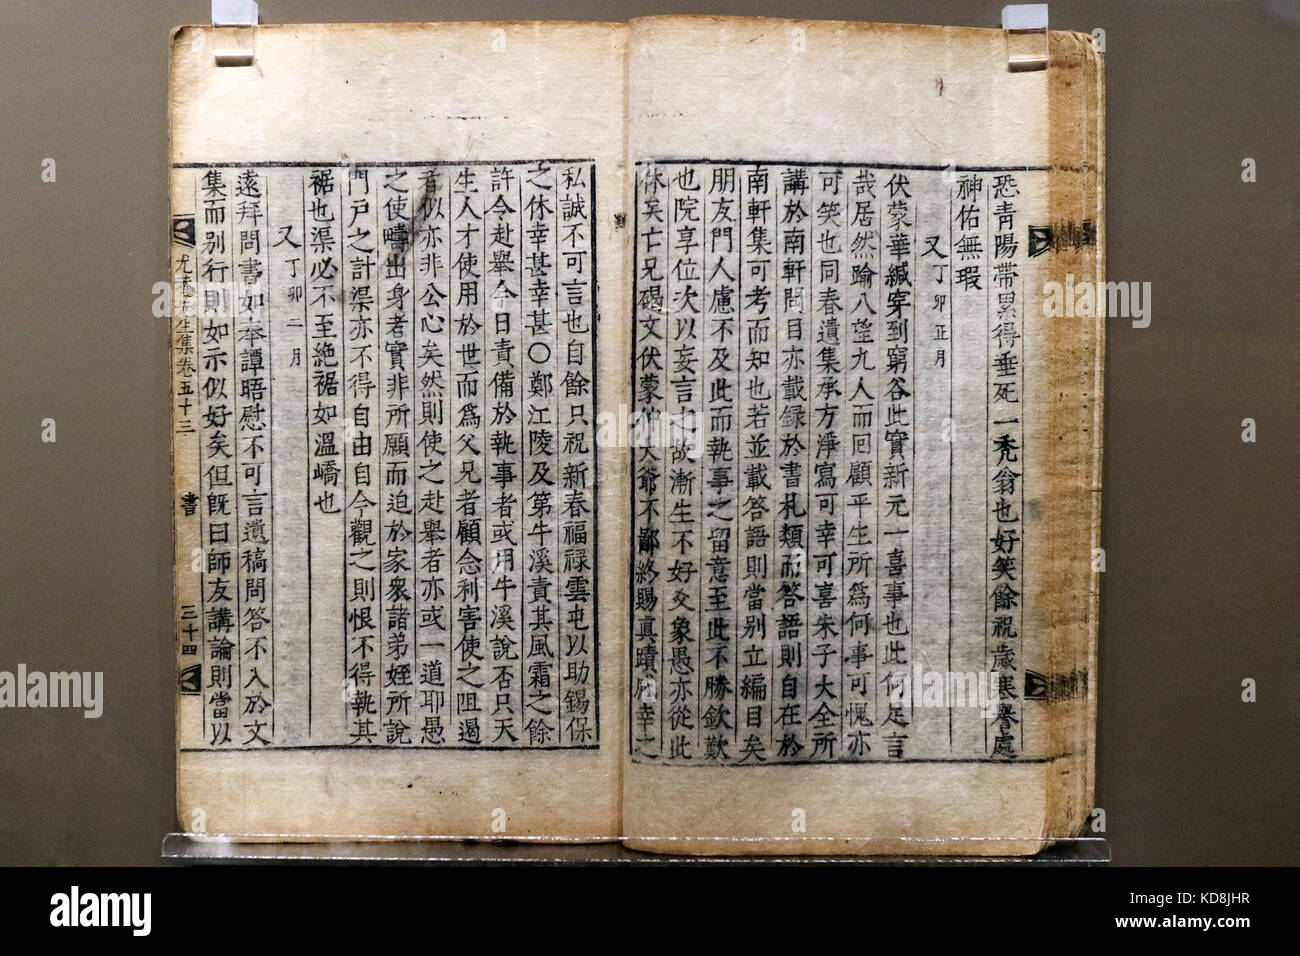 恐青陽帶累得垂死一禿翁也好笑餘祝歲寒譽處
神佑無瑕
又丁卯正月
伏蒙華緘穿到窮谷此實新元一喜事也此何足言
哉居然踰八望九人而回顧平生所爲何事可愧亦
可笑也同春遺集承方淨寫可幸可喜朱子大全所
講於南軒問目亦載録於書札類而答語則自在於
南軒集可考而知也若並載答語則當别立編目矣
朋友門人慮不及此而執事之留意至此不勝欽歎
也院享位次以妄言之故漸生不好爻象愚亦從此
休矣亡兄碣文伏蒙仲大爺不鄙終賜眞蹟幸之
私誠不可言也自餘只祝新春福祿雲屯以助錫保
之休幸甚幸甚〇鄭江陵及第牛溪責其風霜之餘
許令赴擧今日責備於執事者或用牛溪說否只天
生人才使用於世而爲父兄者顧念利害使之阻過
者似亦非公心矣然則使之赴擧者亦或一道耶愚
之使疇出身者實非所願而迫於家衆諸弟姪所說
門戶之計渠亦不得自由自今觀之則恨不得執其
裾也渠必不至絶裾如溫嶠也
又丁卯二月
遠拜問書如奉譚晤慰不可言遺稿問答不入於文
集而别行則如示似好矣但旣曰師友講論則當以
尤菴先生集卷五十三 書 三十四
alamy
KD8JHR
www.alamy.com